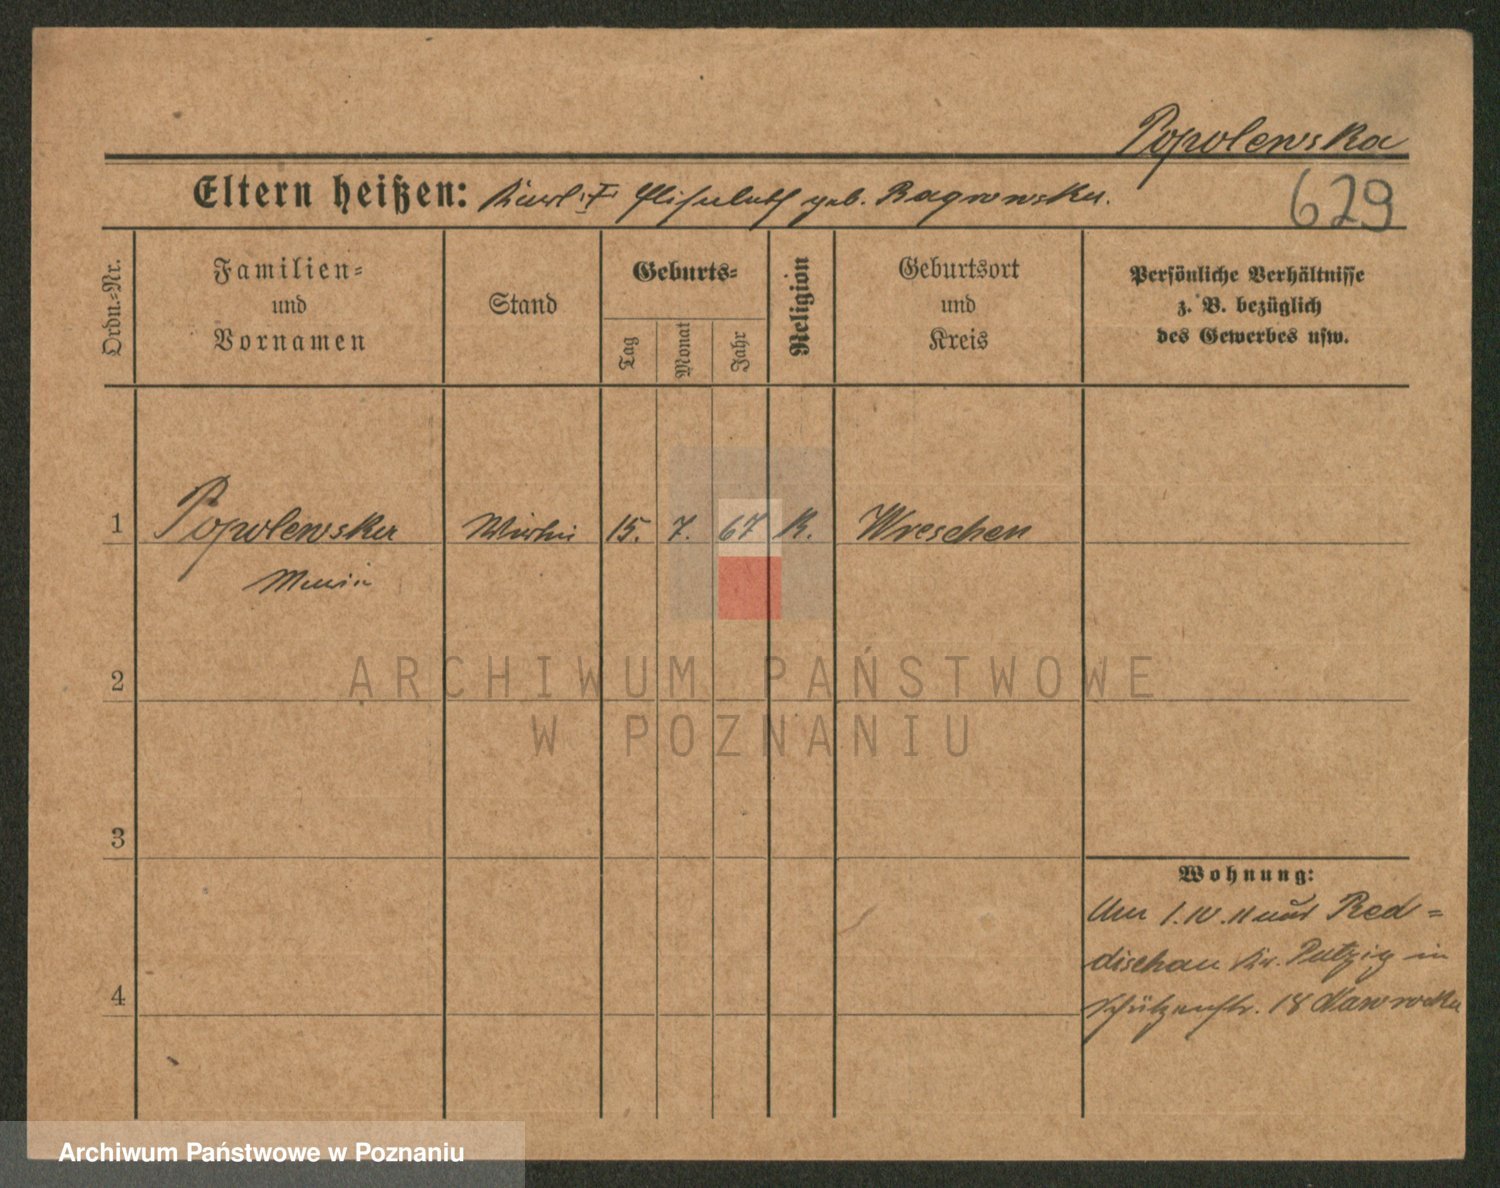 Popolewska
Eltern heißen: Karl u. Elisabeth geb. Bagrowska.
629
Ordn.-Nr.
Familien-
und
Vornamen
Stand
Geburts-
Tag
Monat
Jahr
Religion
Geburtsort
und
Kreis
Persönliche Verhältnisse
z. B. bezüglich
des Gewerbes usw.
1 Popolewska 15. 7. 67 K. Wreschen
Maria
2
3
4
Wohnung:
1. IV. 11 aus Red=
dischau Kr. Putzig in
Schützenstr. 18
ARCHIWUM PAŃSTWOWE
W POZNANIU
Archiwum Państwowe w Poznaniu